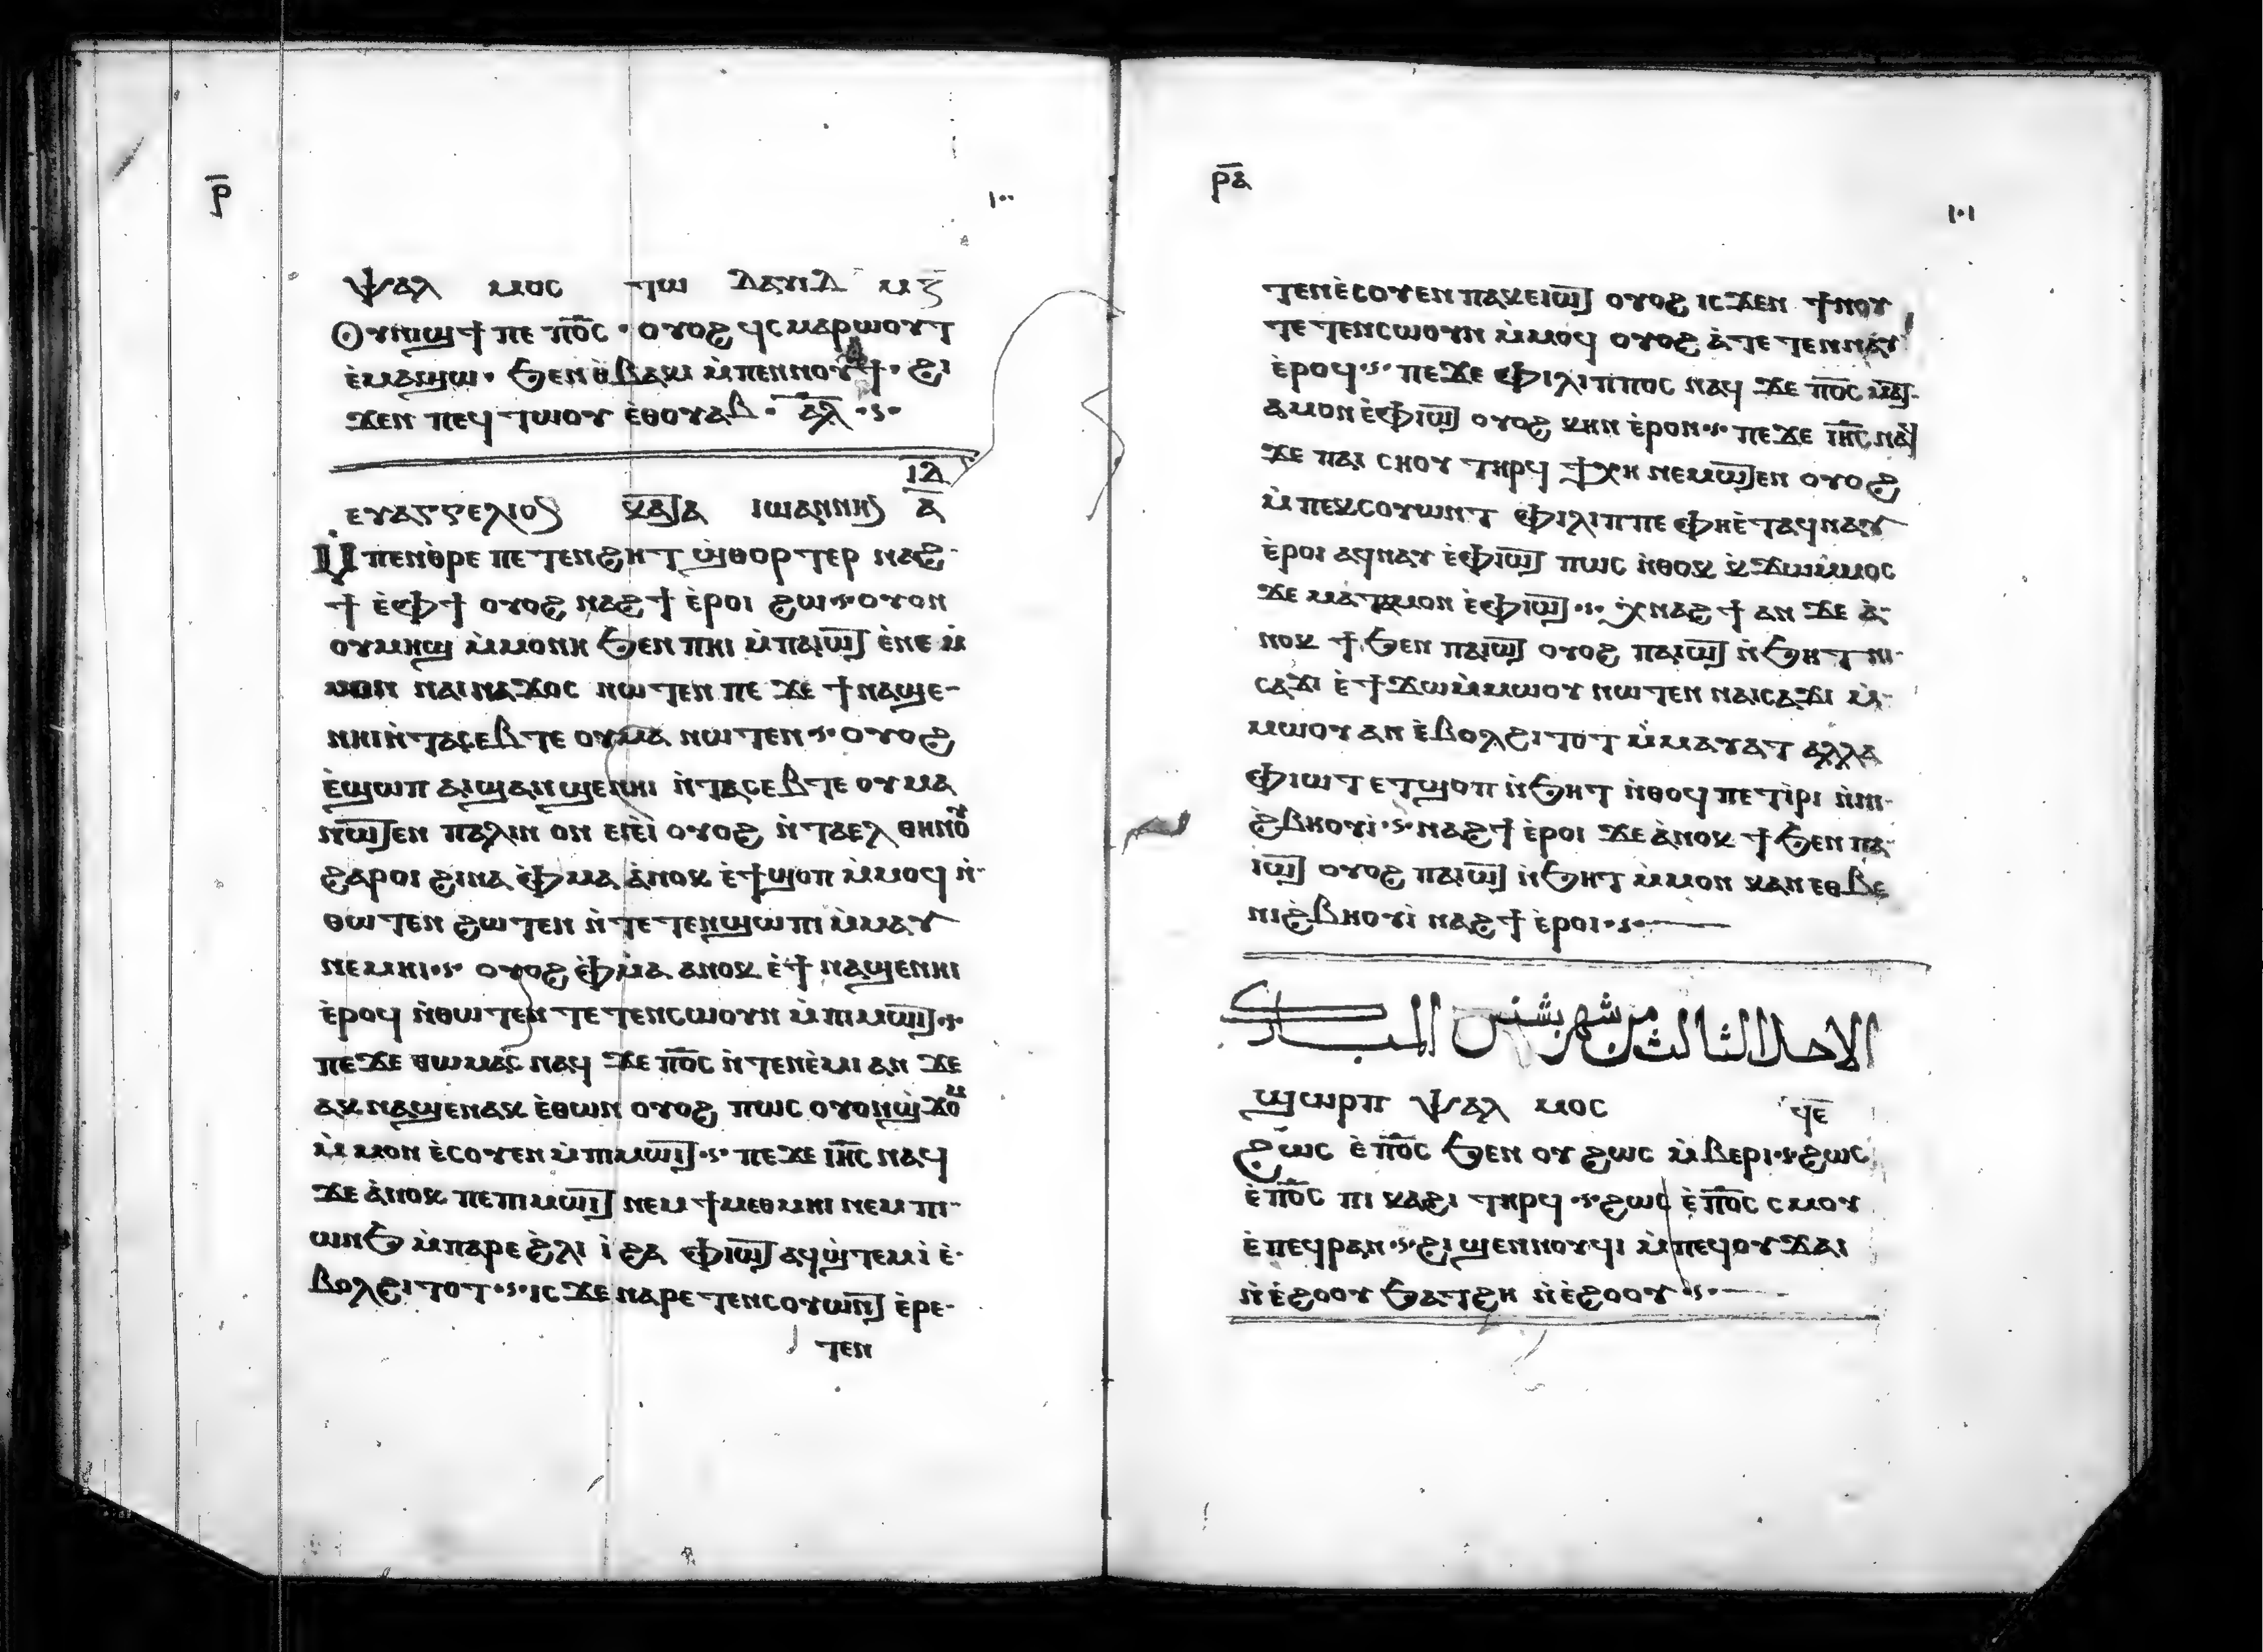 ⲣ̅
١٠٠
ⲯⲁⲗ ⲙⲟⲥ ⲧⲱ ⲇⲁⲩⲓⲇ ⲙⲍ̅
Ⲟⲩⲛⲓϣϯ ⲡⲉ ⲡ⳪ · ⲟⲩⲟϩ ϥⲥⲙⲁⲣⲱⲟⲩⲧ
ⲉ̀ⲙⲁϣⲱ · ϧⲉⲛ ⲑ̀ⲃⲁⲕⲓ ⲙ̀ⲡⲉⲛⲛⲟⲩϯ · ϩⲓ
ϫⲉⲛ ⲡⲉϥⲧⲱⲟⲩ ⲉ̀ⲑⲟⲩⲁⲃ · ⲁ̅ⲗ̅
ⲓ̅ⲇ̅
ⲉⲩⲁⲅⲅⲉⲗⲓⲟⲥ ⲕⲁⲧⲁ ⲓⲱⲁⲛⲛⲏⲥ ⲁ̅
Ⲙ̀ⲡⲉⲛⲑⲣⲉ ⲡⲉⲧⲉⲛϩⲏⲧ ϣ̀ⲑⲟⲣⲧⲉⲣ ⲛⲁϩ-
ϯ ⲉ̀ⲫϯ ⲟⲩⲟϩ ⲛⲁϩϯ ⲉ̀ⲣⲟⲓ ϩⲱ ⲟⲩⲟⲛ
ⲟⲩⲙⲏϣ ⲙ̀ⲙⲟⲛⲏ ϧⲉⲛ ⲡⲏⲓ ⲙ̀ⲡⲁⲓⲱⲧ ⲉ̀ⲛⲉ ⲙ̀
ⲙⲟⲛ ⲛⲁⲓⲛⲁϫⲟⲥ ⲛⲱⲧⲉⲛ ⲡⲉ ϫⲉ ϯⲛⲁϣⲉ-
ⲛⲏⲓⲛ̀ⲧⲁⲥⲉⲃⲧⲉ ⲟⲩⲙⲁ ⲛⲱⲧⲉⲛ ⲟⲩⲟϩ
ⲉ̀ϣⲱⲡ ⲁⲓϣⲁⲛϣⲉⲛⲏⲓ ⲛ̀ⲧⲁⲥⲉⲃⲧⲉ ⲟⲩⲙⲁ
ⲛⲱⲧⲉⲛ ⲡⲁⲗⲓⲛ ⲟⲛ ⲉⲓⲉ̀ⲓ ⲟⲩⲟϩ ⲛ̀ⲧⲁⲉⲗ ⲑⲏⲛⲟⲩ
ϩⲁⲣⲟⲓ ϩⲓⲛⲁ ⲫ̀ⲙⲁ ⲁ̀ⲛⲟⲕ ⲉ̀ϯϣⲟⲡ ⲙ̀ⲙⲟϥ ⲛ̀-
ⲑⲱⲧⲉⲛ ϩⲱⲧⲉⲛ ⲛ̀ⲧⲉⲧⲉⲛϣⲱⲡⲓ ⲙ̀ⲙⲁⲩ
ⲛⲉⲙⲏⲓ ⲟⲩⲟϩ ⲫ̀ⲙⲁ ⲁⲛⲟⲕ ⲉ̀ϯⲛⲁϣⲉⲛⲏⲓ
ⲉ̀ⲣⲟϥ ⲛ̀ⲑⲱⲧⲉⲛ ⲧⲉⲧⲉⲛⲥⲱⲟⲩⲛ ⲙ̀ⲡⲓⲙⲱⲓⲧ
ⲡⲉϫⲉ ⲑⲱⲙⲁⲥ ⲛⲁϥ ϫⲉ ⲡ⳪ ⲛ̀ⲧⲉⲛⲉ̀ⲙⲓ ⲁⲛ ϫⲉ
ⲁⲕⲛⲁϣⲉⲛⲁⲕ ⲉ̀ⲑⲱⲛ ⲟⲩⲟϩ ⲡⲱⲥ ⲟⲩⲟⲛϣ̀ϫⲟⲙ
ⲙ̀ⲙⲟⲛ ⲉ̀ⲥⲟⲩⲉⲛ ⲙ̀ⲡⲓⲙⲱⲓⲧ ⲡⲉϫⲉ ⲓⲏ̅ⲥ̅ ⲛⲁϥ
ϫⲉ ⲁ̀ⲛⲟⲕ ⲡⲉⲡⲓⲙⲱⲓⲧ ⲛⲉⲙ ϯⲙⲉⲑⲙⲏⲓ ⲛⲉⲙ ⲡⲓ-
ⲱⲛϧ ⲙ̀ⲡⲁⲣⲉ ϩ̀ⲗⲓ ⲓ̀ ϩⲁ ⲫⲓⲱⲧ ⲁϥϣ̀ⲧⲉⲙⲓ̀ ⲉ̀-
ⲃⲟⲗϩⲓⲧⲟⲧ ⲓⲥϫⲉ ⲛⲁⲣⲉⲧⲉⲛⲥⲟⲩⲱⲛⲧ ⲉ̀ⲣⲉ-
ⲧⲉⲛ
ⲣ̅ⲁ̅
١٠١
ⲧⲉⲛⲉ̀ⲥⲟⲩⲉⲛ ⲡⲁⲕⲉⲓⲱⲧ ⲟⲩⲟϩ ⲓⲥϫⲉⲛ ϯⲛⲟⲩ
ⲧⲉⲧⲉⲛⲥⲱⲟⲩⲛ ⲙ̀ⲙⲟϥ ⲟⲩⲟϩ ⲁ̀ⲧⲉⲧⲉⲛⲛⲁⲩ
ⲉ̀ⲣⲟϥ ⲡⲉϫⲉ ⲫⲓⲗⲓⲡⲡⲟⲥ ⲛⲁϥ ϫⲉ ⲡ⳪ ⲙⲁⲧ-
ⲁⲙⲟⲛ ⲉ̀ⲫⲓⲱⲧ ⲟⲩⲟϩ ⲕⲏⲛ ⲉ̀ⲣⲟⲛ ⲡⲉϫⲉ ⲓⲏ̅ⲥ̅ ⲛⲁϥ
ϫⲉ ⲡⲁⲓ ⲥⲏⲟⲩ ⲧⲏⲣϥ ϯⲭⲏ ⲛⲉⲙⲱⲧⲉⲛ ⲟⲩⲟϩ
ⲙ̀ⲡⲉⲕⲥⲟⲩⲱⲛⲧ ⲫⲓⲗⲓⲡⲡⲉ ⲫⲏⲉ̀ⲧⲁϥⲛⲁⲩ
ⲉ̀ⲣⲟⲓ ⲁϥⲛⲁⲩ ⲉ̀ⲫⲓⲱⲧ ⲡⲱⲥ ⲛ̀ⲑⲟⲕ ⲕ̀ϫⲱⲙ̀ⲙⲟⲥ
ϫⲉ ⲙⲁⲧⲁⲙⲟⲛ ⲉ̀ⲫⲓⲱⲧ ⲭ̀ⲛⲁϩϯ ⲁⲛ ϫⲉ ⲁ̀-
ⲛⲟⲕ ϯϧⲉⲛ ⲡⲁⲓⲱⲧ ⲟⲩⲟϩ ⲡⲁⲓⲱⲧ ⲛ̀ϧⲏⲧ ⲛⲓ-
ⲥⲁϫⲓ ⲉ̀ϯϫⲱⲙ̀ⲙⲱⲟⲩ ⲛⲱⲧⲉⲛ ⲛⲁⲓⲥⲁϫⲓ ⲙ̀-
ⲙⲱⲟⲩ ⲁⲛ ⲉ̀ⲃⲟⲗϩⲓⲧⲟⲧ ⲙ̀ⲙⲁⲩⲁⲧ ⲁⲗⲗⲁ
ⲫⲓⲱⲧ ⲉⲧϣⲟⲡ ⲛ̀ϧⲏⲧ ⲛ̀ⲑⲟϥ ⲡⲉⲧⲓ̀ⲣⲓ ⲛ̀ⲛⲓ-
ϩ̀ⲃⲏⲟⲩⲓ̀ ⲛⲁϩϯ ⲉ̀ⲣⲟⲓ ϫⲉ ⲁ̀ⲛⲟⲕ ϯϧⲉⲛ ⲡⲁ-
ⲓⲱⲧ ⲟⲩⲟϩ ⲡⲁⲓⲱⲧ ⲛ̀ϧⲏⲧ ⲙ̀ⲙⲟⲛ ⲕⲁⲛ ⲉⲑⲃⲉ
ⲛⲓϩ̀ⲃⲏⲟⲩⲓ̀ ⲛⲁϩϯ ⲉ̀ⲣⲟⲓ
الاحد الثالث من شهر بشنس المبارك
ϣⲱⲣⲡ ⲯⲁⲗ ⲙⲟⲥ ϥ̅ⲉ̅
Ϩⲱⲥ ⲉ̀ⲡ⳪ ϧⲉⲛ ⲟⲩϩⲱⲥ ⲙ̀ⲃⲉⲣⲓ ϩⲱⲥ
ⲉ̀ⲡ⳪ ⲡⲓⲕⲁϩⲓ ⲧⲏⲣϥ ϩⲱⲥ ⲉ̀ⲡ⳪ ⲥⲙⲟⲩ
ⲉ̀ⲡⲉϥⲣⲁⲛ ϩⲓϣⲉⲛⲛⲟⲩϥⲓ ⲙ̀ⲡⲉϥⲟⲩϫⲁⲓ
ⲛ̀ⲉ̀ϩⲟⲟⲩ ϧⲁⲧϩⲏ ⲛ̀ⲉ̀ϩⲟⲟⲩ